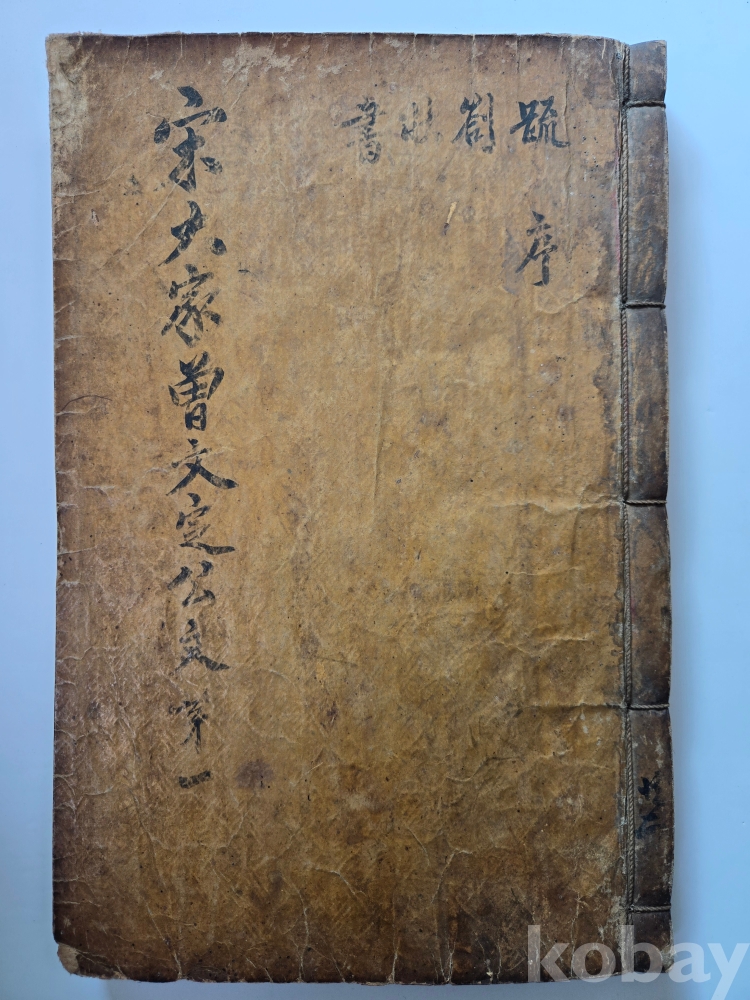 疏劄狀書
序
宋大家曾文定公文第一
kobay